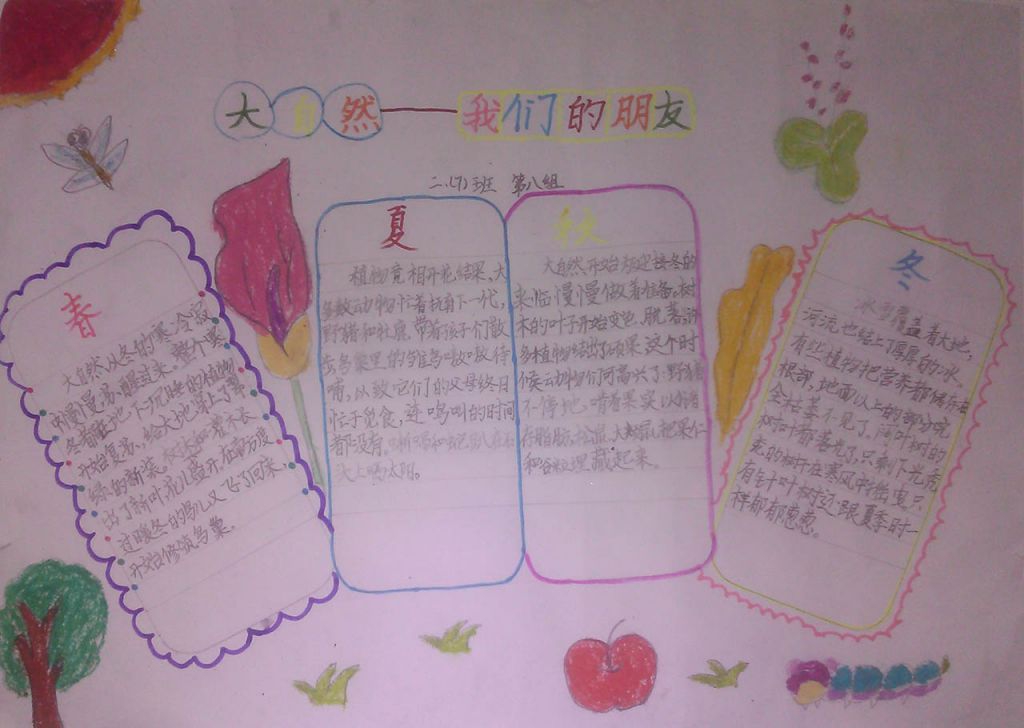 大自然——我们的朋友
二.(7)班 第八组
春
大自然从冬的寒冷寂
中慢慢苏醒过来。整个寒
冬着睡土地下沉睡的植物
开始复苏、给大地穿上了翠
绿的新装。树枝
出了新叶花儿盛开在南方度
过暖冬的鸟儿又飞了回来、
开始修筑鸟巢。
夏
植物竞相开花结果、大
多数动物忙着抚育下一代，
野猪和牡鹿带着孩子们散
步鸟巢里的雏鸟嗷嗷待
哺，从致它们的父母终日
忙于觅食，连鸣叫的时间
都没有。蜥蜴和蛇趴在石
头上晒太阳。
秋
大自然开始为迎接冬的
来临慢慢做着准备。树
木的叶子开始变色、脱落、许
多植物结出了硕果。这个时
候动物们可高兴了：野猪
不停地啃着果实以储
存脂肪、松鼠、大 把果仁
和谷粒埋藏起来。
冬
冰雪覆盖着大地，
河流也结上了厚厚的冰。
有些植物把营养都储存在
根部，地面以上的部分完
全枯萎不见了。阔叶树的
树叶都落光了，只剩下光秃
秃的树杆在寒风中摇曳只
有针叶树还跟夏季时一
样郁郁葱葱。